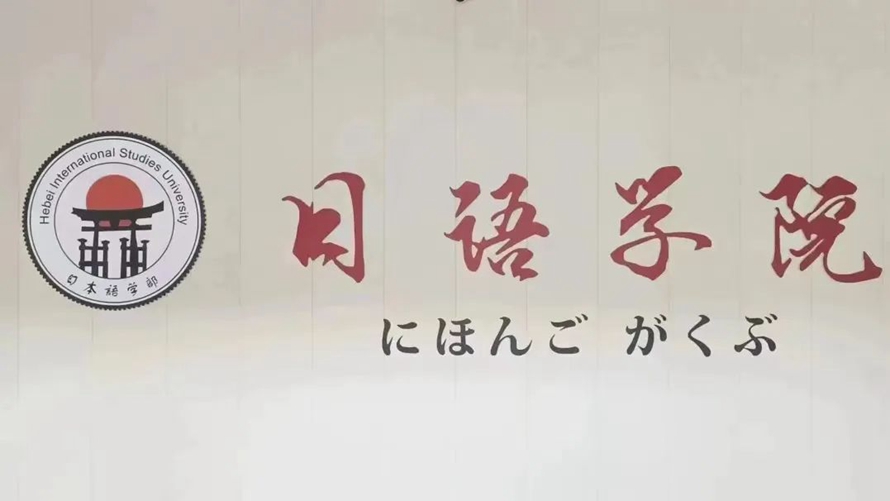 Hebei International Studies University
日本語学部
日语学院
にほんご がくぶ